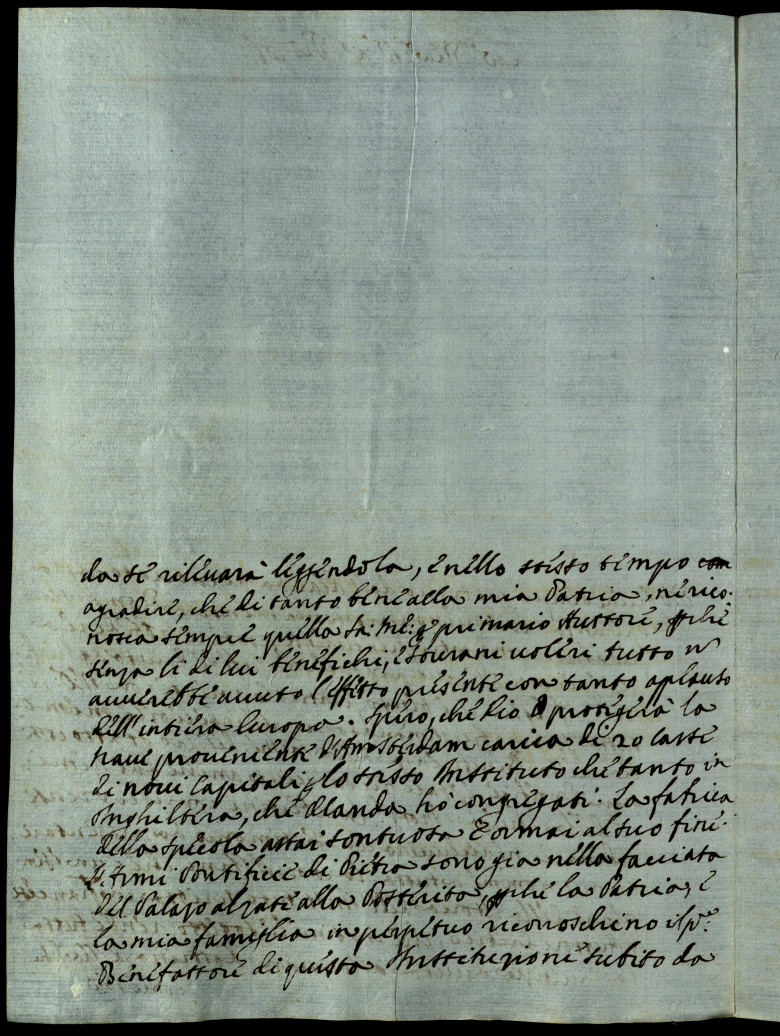 da se rilevarà leggendola, e nello stesso tempo
agradire, che di tanto bene alla mia Patria, ne rico-
nosca sempre quella Sa: Me: p primario Auttore, pche
senza li di lui benefichi, e sourani uoleri tutto nõ
auuerebbe auuto l'effetto presente con tanto aplauso
dell'intiera Europa. Spero, che Dio protegerà la
naue proueniente d'Amsterdam carica di 20 casse
di noui Capitali p lo stesso Instituto che tanto in
Inghiltera, che Olanda hò congregati. La fabrica
della specola assai sontuosa è ormai al suo fine.
L'Armi Pontificie di Pietra sono gia nella facciata
del Palazo alzate alla Posterita, pche la Patria, e
la mia famiglia in perpetuo riconoschino il pº:
Benefattore di questa Instituzione subito da